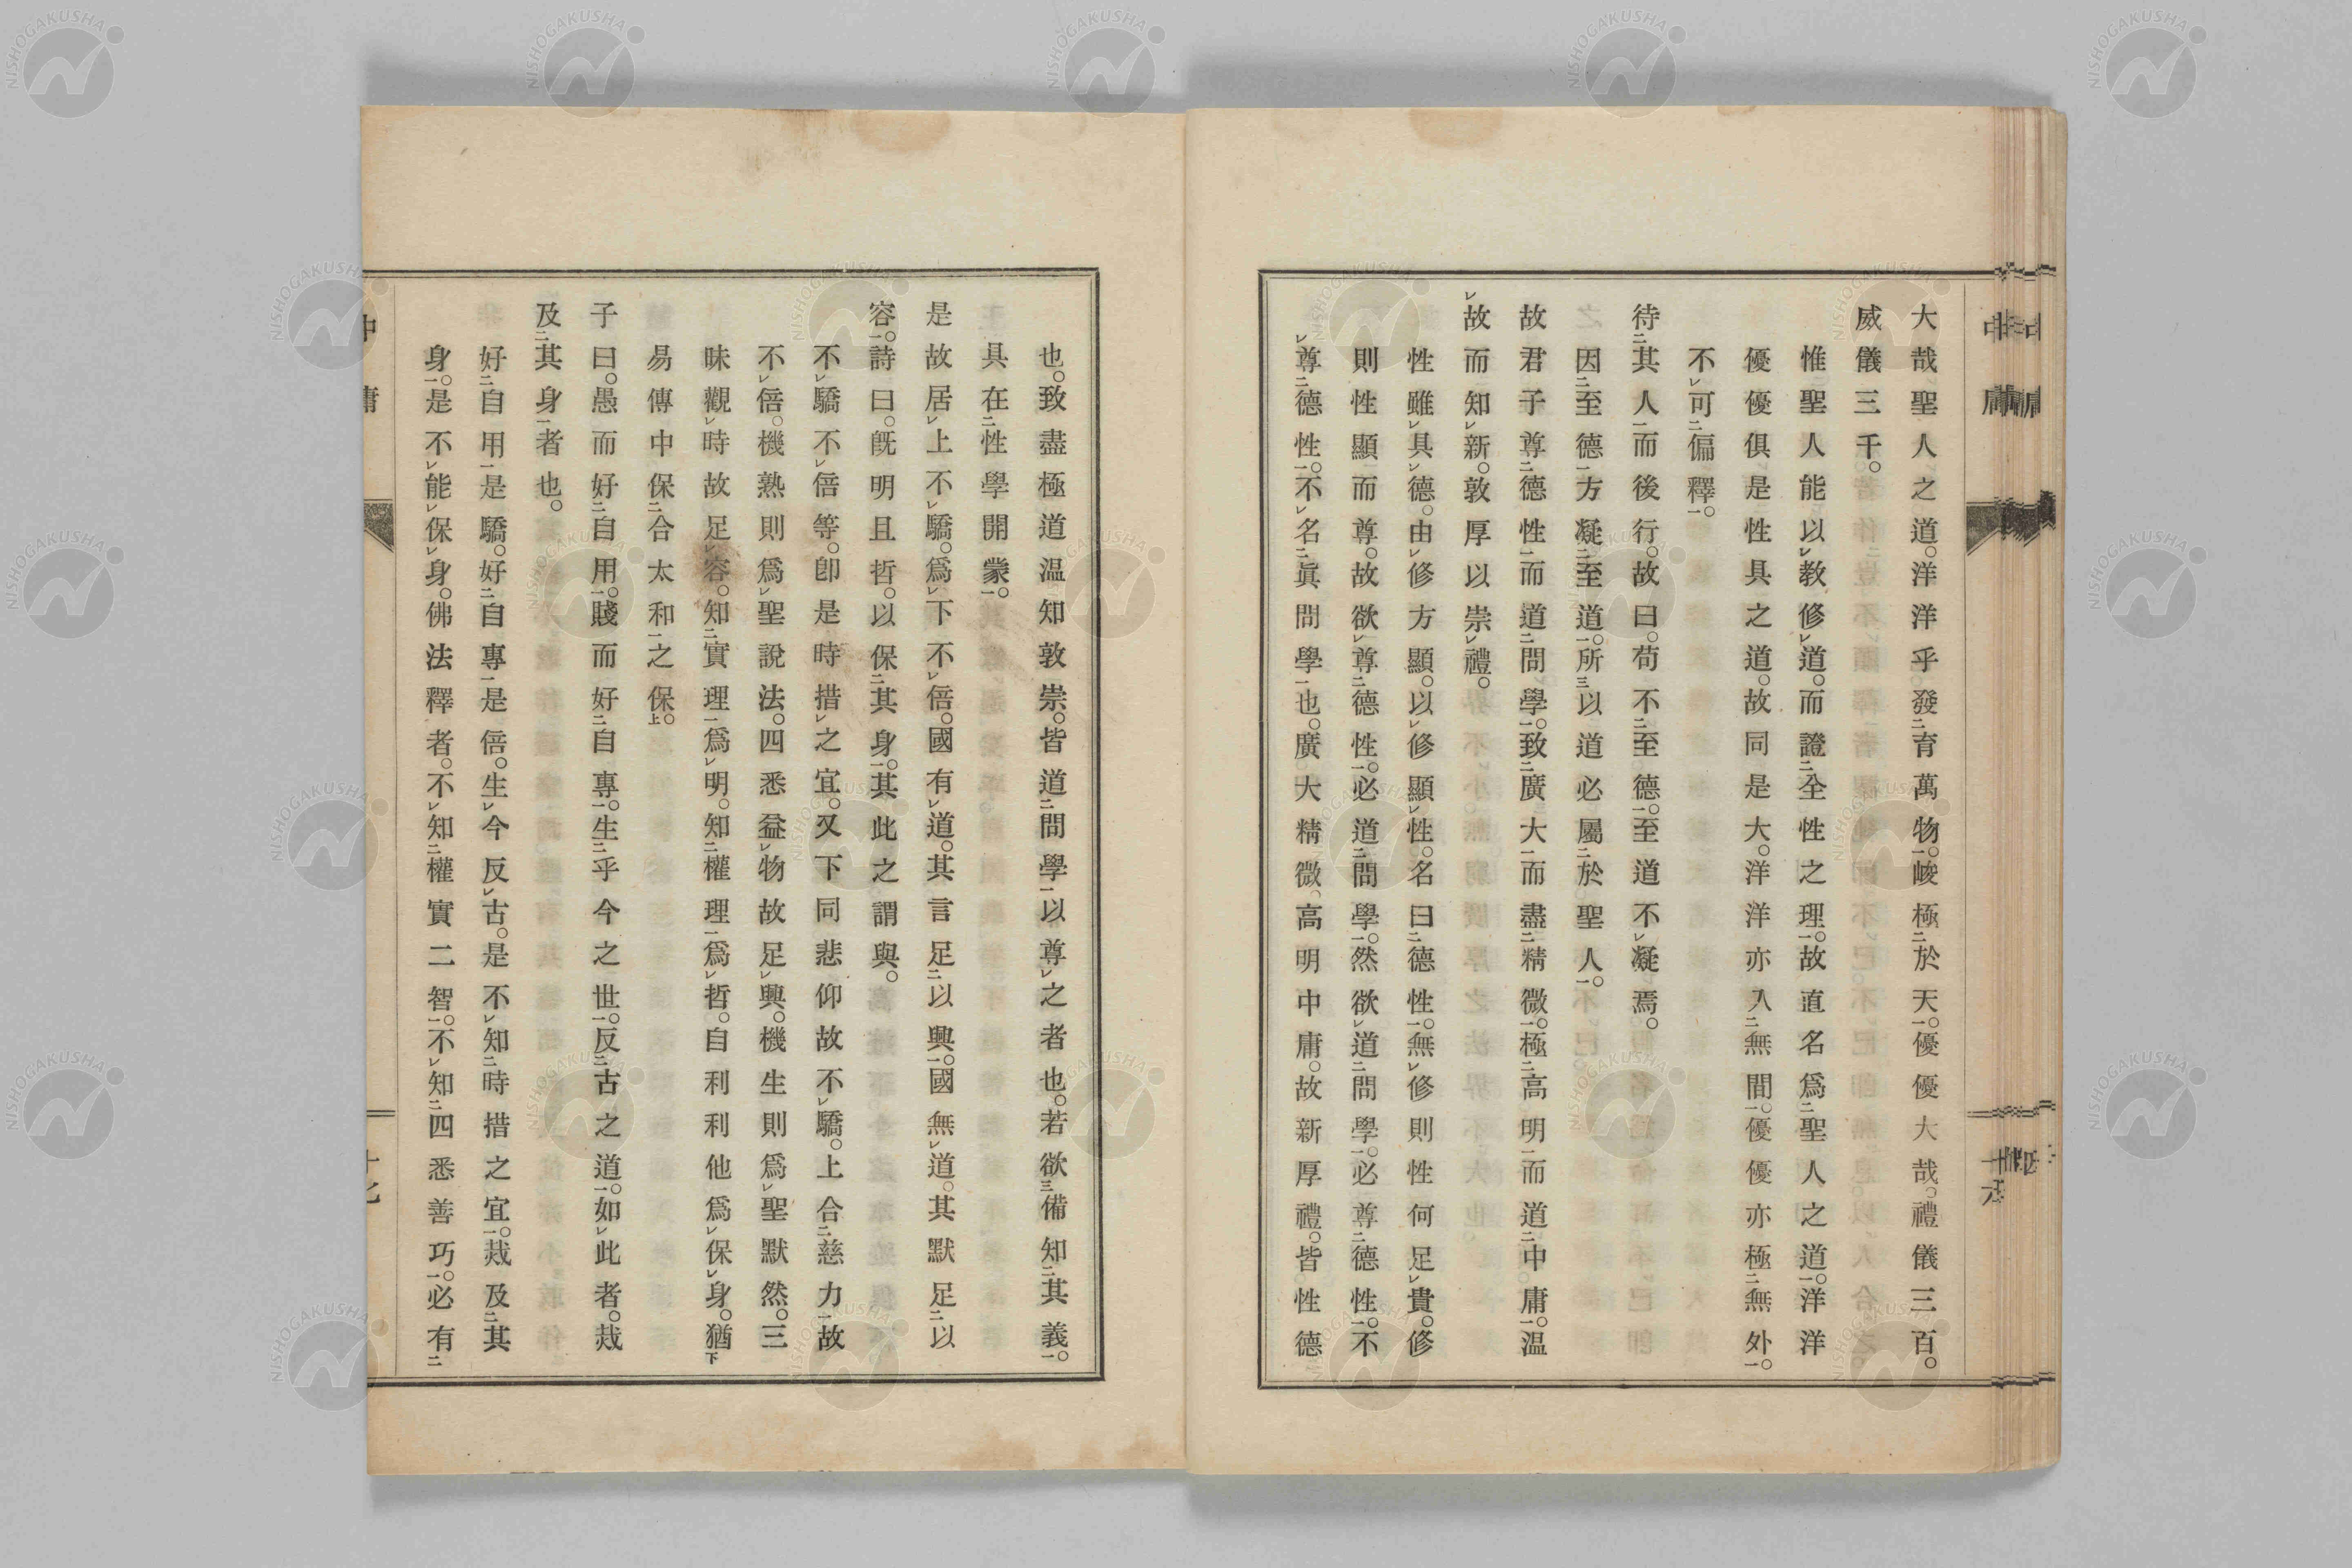 大哉聖人之道。洋洋乎發育萬物。峻極於天。優優大哉。禮儀三百。
威儀三千。
惟聖人能以敎修道。而證全性之理。故直名爲聖人之道。洋洋
優優俱是性具之道。故同是大。洋洋亦入無間。優優亦極無外。
不可偏釋。
待其人而後行。故曰。苟不至德。至道不凝焉。
因至德方凝至道。所以道必屬於聖人。
故君子尊德性而道問學。致廣大而盡精微。極高明而道中庸。温
故而知新。敦厚以崇禮。
性雖具德。由修方顯。以修顯性。名曰德性。無修則性何足貴。修
則性顯而尊。故欲尊德性。必道問學。然欲道問學。必尊德性。不
尊德性。不名眞問學也。廣大精微。高明中庸。故新厚禮。皆性德
也。致盡極道温知敦崇。皆道問學以尊之者也。若欲備知其義。
具在性學開蒙。
是故居上不驕。爲下不倍。國有道。其言足以興。國無道。其默足以
容。詩曰。旣明且哲。以保其身。其此之謂與。
不驕不倍等。卽是時措之宜。又下同悲仰故不驕。上合慈力故
不倍。機熟則爲聖說法。四悉益物故足興。機生則爲聖默然。三
昧觀時故足容。知實理爲明。知權理爲哲。自利利他爲保身。猶
易傳中保合太和之保。
子曰。愚而好自用。賤而好自專。生乎今之世。反古之道。如此者。烖
及其身者也。
好自用是驕。好自專是倍。生今反古。是不知時措之宜。烖及其
身。是不能保身。佛法釋者。不知權實二智。不知四悉善巧。必有
中庸
NISHOGAKUSHA